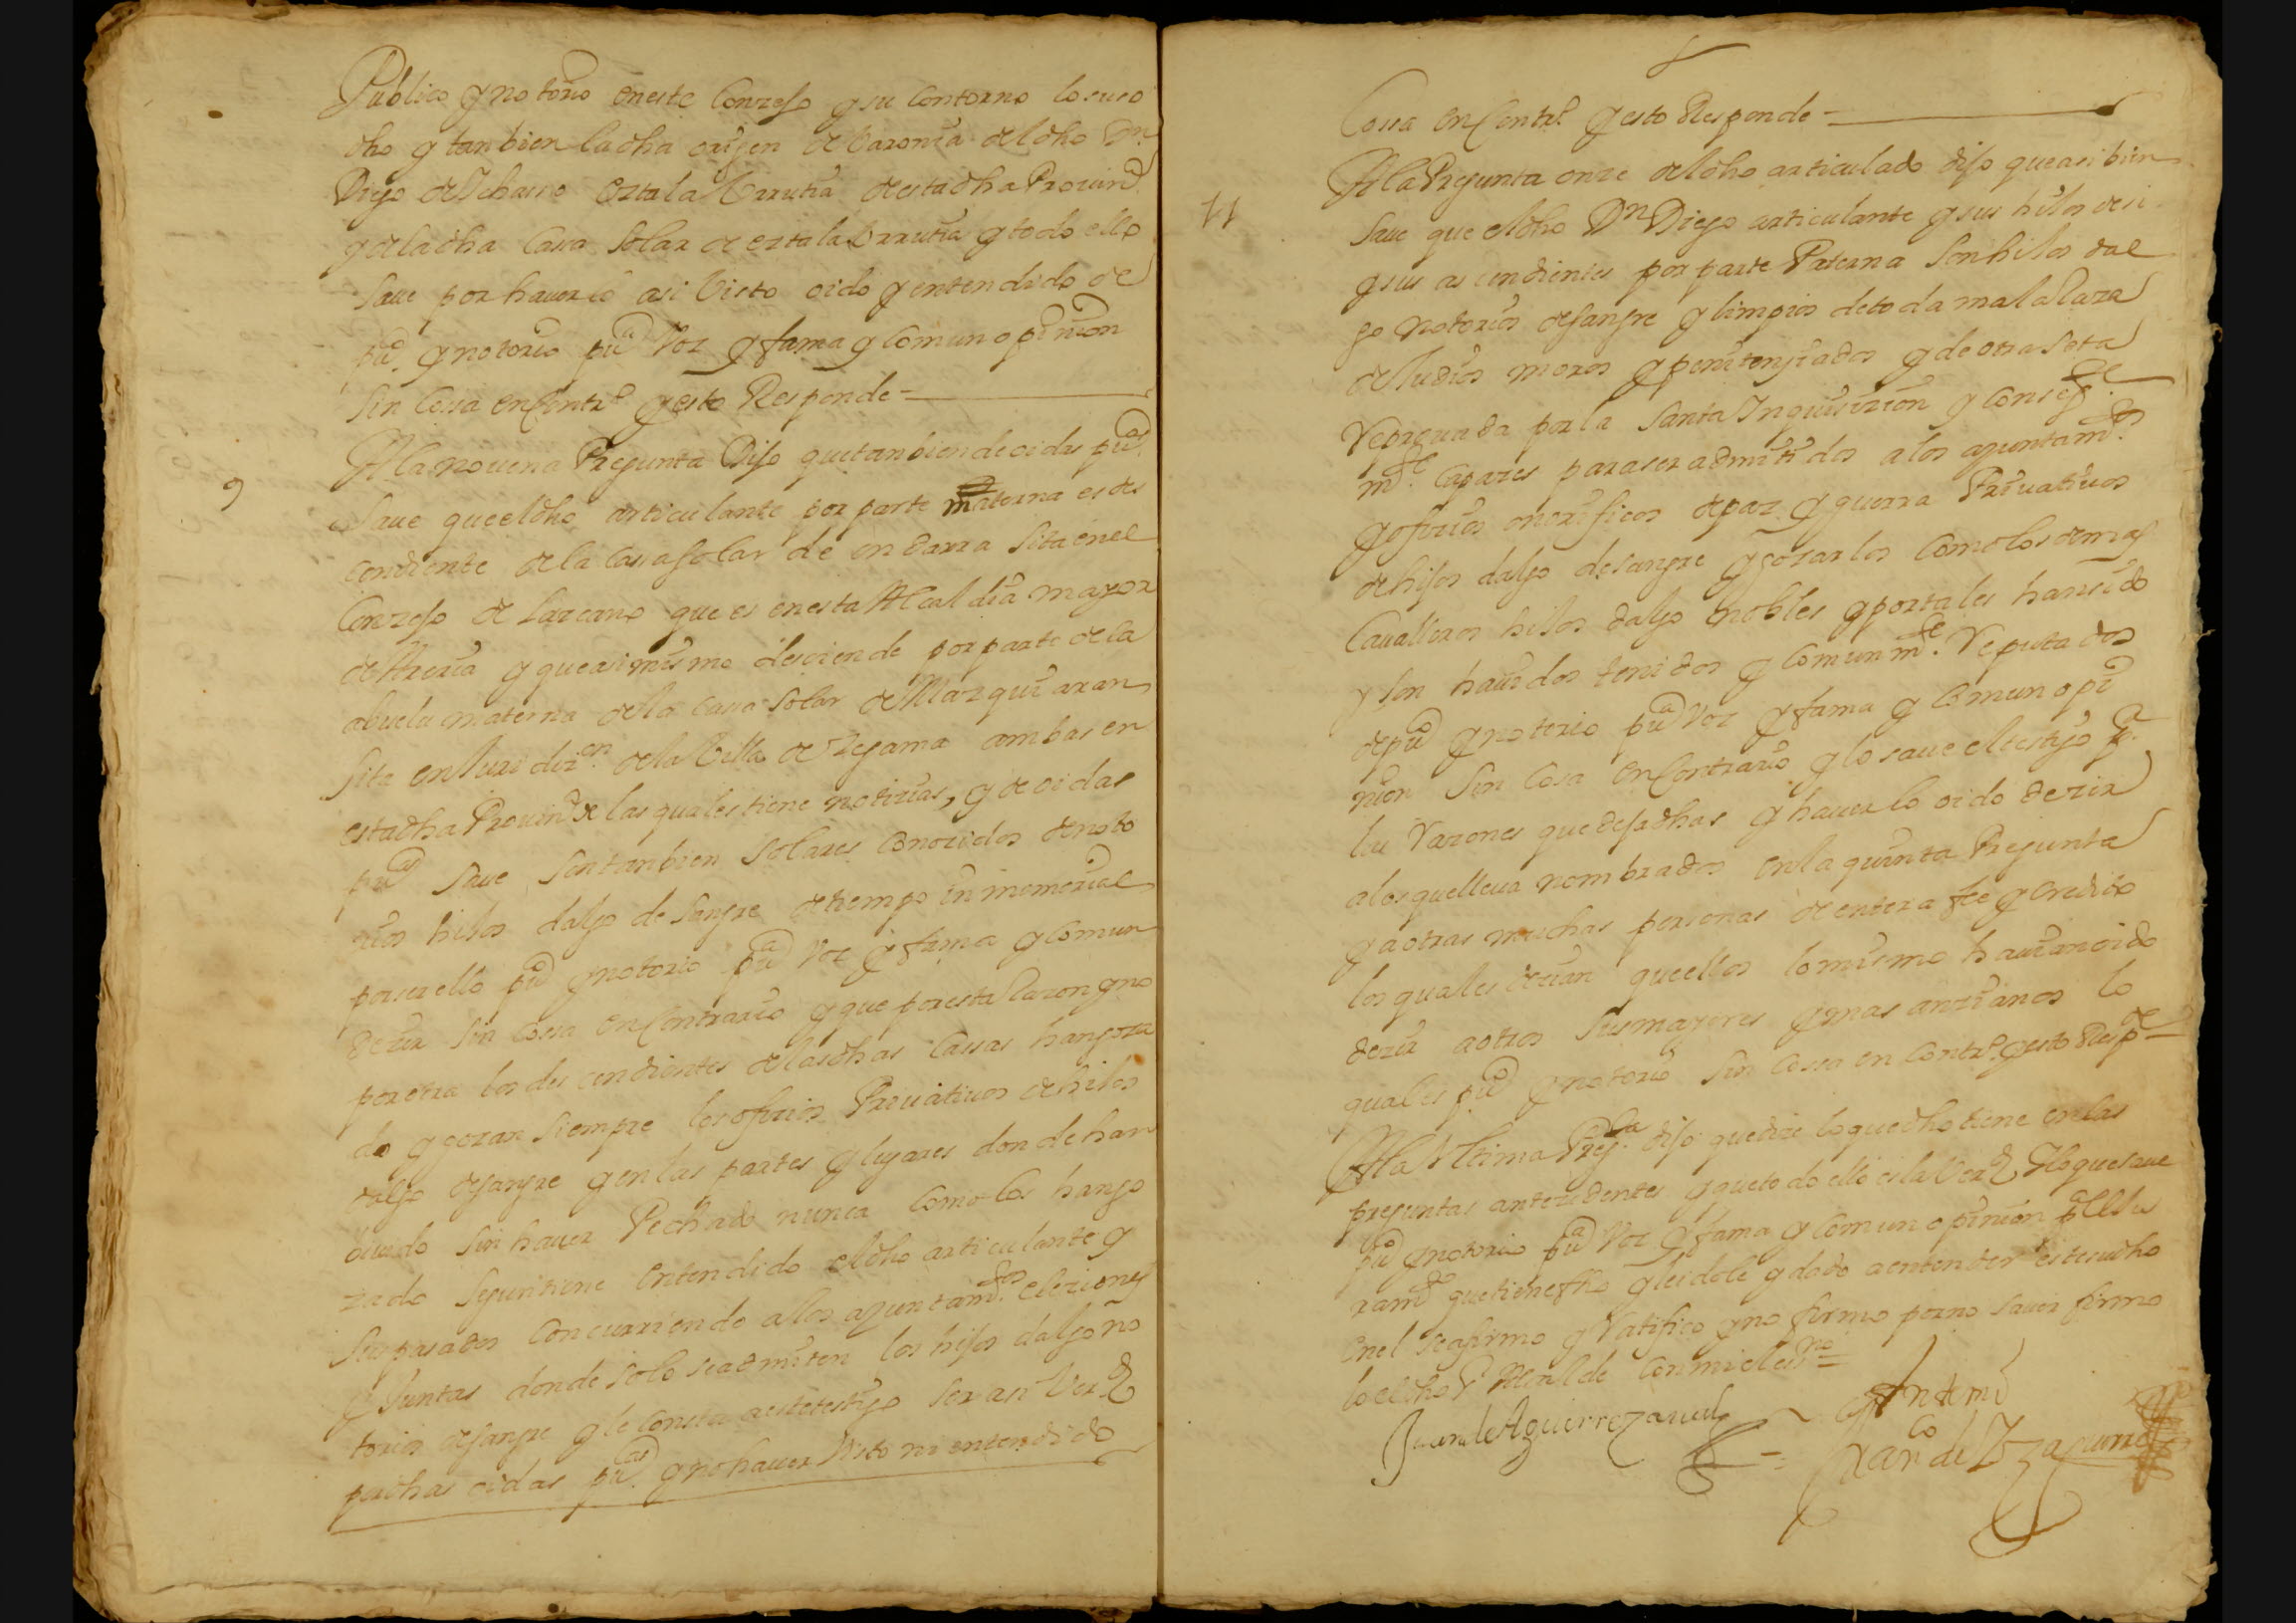 Publico y notorio en este Conzejo y su Contorno lo suso
dho y tanbien la dha origen de Varonia del dho Dn.
Diego de Echarro Eztala Urrutia de esta dha Provinª.
y de la dha Cassa Solar de eztala Urrutia y todo ello
save por haverlo asi Visto oido y entendido de
puco. y notorio puca Voz y fama y Comun opinion
sin Cossa en Contrº. y esto Responde
9
A la novena Pregunta Dijo que tanbien de oidas pucas.
save que el dho articulante por parte materna es des
cendiente de la Cassa Solar de en darra sita en el
Conzejo de Lazcano que es en esta Alcaldia mayor
de Areria y que asimismo desciende por parte de la
abuela materna de la Cassa Solar de Mazquiaran
sita en Juridizon. de la Villa de Zegama ambas en
esta dha Provinª de las quales tiene notizias, y de oidas
pucas save son tanbien Solares Conozidos de noto
rios hijos dalgo de Sangre de tiempo inmemorial
por ser ello puco y notorio puca Voz y fama y Comun
dezir sin Cossa en Contrario y que por esta Razon y no
por otra los descendientes de las dhas Cassas han goza
do y gozan siempre los ofizios Privativos de hijos
dalgo de sangre y en las partes y lugares donde han
vivido sin haver Pechado nunca Como los han go
zado segun tiene Entendido el dho articulante y
sus pasados Concurriendo a los ayuntamtos. eleziones
y Juntas donde solo se admiten los hijos dalgo no
torios de sangre y le Consta a este testigo ser asi Verd
por dhas oidas pucas. y no haver Visto ni entendido
Cossa en Contrº. y esto Responde
11
A la Pregunta onze del dho articulado dijo que asi bien
save que el dho Dn Diego articulante y sus hijos de si
y sus ascendientes por parte Paterna son hijos dal
go notorios de sangre y limpios de toda mala Raza
de Judios moros y penitenziados y de otra seta
Reprouada por la Santa Inquisizion y Consigte.
mte. Capazes para ser admitidos a los ayuntamtos.
y ofizios onorificos de paz y guerra Privativos
de hijos dalgo de sangre y gozar los Como los demas
Cavalleros hijos dalgo nobles y por tales han sido
y son havidos tenidos y Comunmte. Reputados
de puco y notorio puca Voz y fama y Comun opi
nion sin Cosa en Contrario y lo save el testigo pª.
las Razones que deja dhas y haverlo oido dezir
a los que lleva nombrados en la quinta Pregunta
y a otras muchas personas de entera fee y Credito
los quales dezian que ellos lo mismo havian oido
dezir a otros sus mayores y mas anzianos lo
qual es puco y notorio sin Cossa en Contrº. y esto Respde
A la Ultima Pregta. dijo que dize lo que dho tiene en las
preguntas antezedentes y que todo ello es la Verd y lo que save
puco y notorio puca Voz y fama y Comun opinion pª el Ju
ramto que tiene fho y leidole y dado a entender este su dho
en el se afirmo y Ratifico y no firmo por no saver firmo
lo el dho Sr Alcalde Con mi el essno
Juan de Aguirrezavala
Ante mi
Franco de Yzaguirre